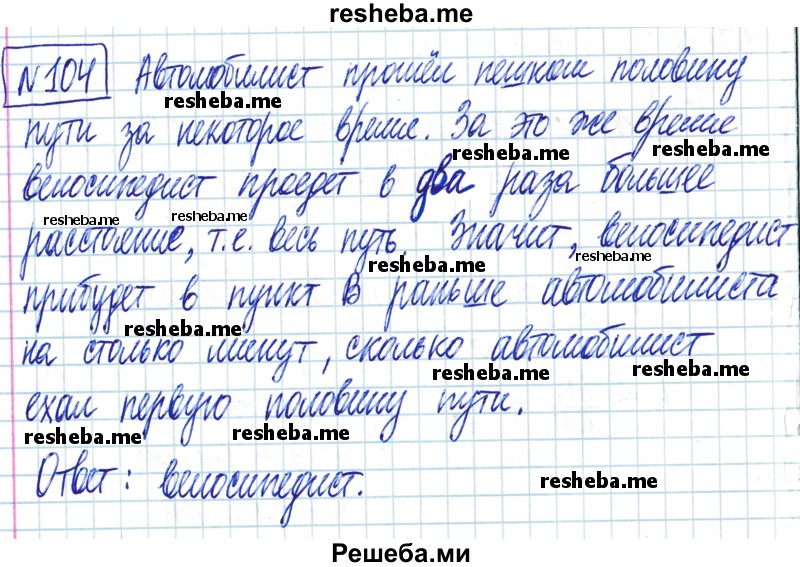 resheba.me
№104 Автомобилист прошёл пешком половину
resheba.me
пути за некоторое время. За это же время
resheba.me resheba.me
велосипедист проедет в два раза большее
resheba.me resheba.me
расстояние, т.е. весь путь. Значит, велосипедист
resheba.me resheba.me
прибудет в пункт В раньше автомобилиста
resheba.me
на столько минут, сколько автомобилист
resheba.me resheba.me
ехал первую половину пути.
resheba.me resheba.me
Ответ: велосипедист.
resheba.me
Решеба.ми